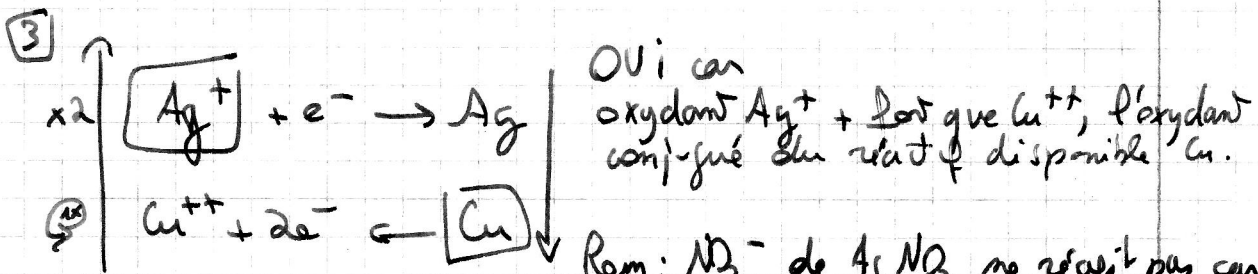 3
x2 Ag⁺ + e⁻ → Ag
1x Cu⁺⁺ + 2e⁻ ← Cu
OUi car
oxydant Ag⁺ + fort que Cu⁺⁺, l'oxydant
conjugué du réactif disponible Cu.
Rem: NO₃⁻ de AgNO₃ ne réagit pas car